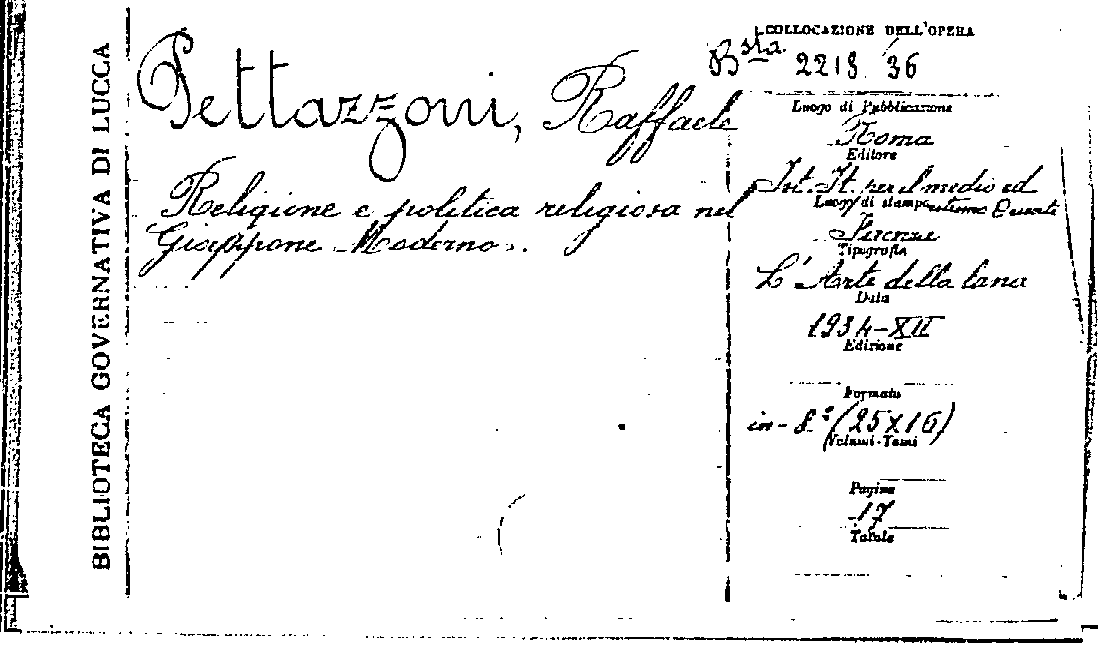 BIBLIOTECA GOVERNATIVA DI LUCCA
Pettazzoni, Raffaele
Religione e politica religiosa nel
Giappone Moderno.
COLLOCAZIONE DELL'OPERA
Bsta 2219 36
Luogo di Pubblicazione
Roma
Editore
Ist. It. per il medio ed
estremo Oriente
Luogo di stampa
Firenze
Tipografia
L'Arte della lana
Data
1934-XII
Edizione
Formato
in-8.° (25x16)
Volumi-Tomi
Pagine
17
Tavole